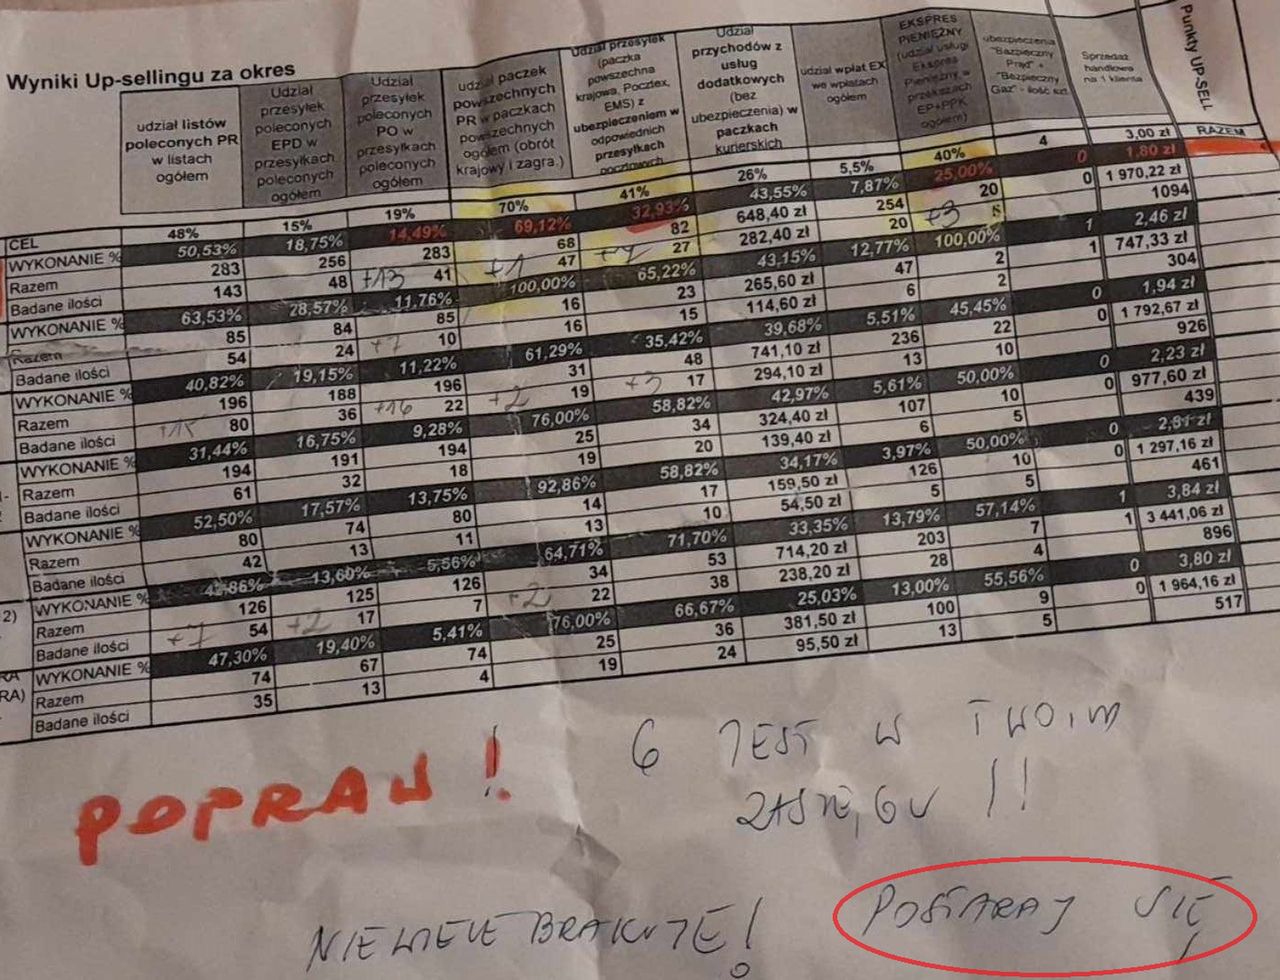 Wyniki Up-sellingu za okres
udział listów poleconych PR w listach ogółem
Udział przesyłek poleconych EPD w przesyłkach poleconych ogółem
Udział przesyłek poleconych PO w przesyłkach poleconych ogółem
udział paczek powszechnych PR w paczkach powszechnych ogółem (obrót krajowy i zagra.)
Udział przesyłek (paczka powszechna krajowa, Pocztex, EMS) z ubezpieczeniem w odpowiednich przesyłkach pocztowych
Udział przychodów z usług dodatkowych (bez ubezpieczenia) w paczkach kurierskich
udział wpłat EX we wpłatach ogółem
EKSPRES PIENIĘŻNY (udział usługi Ekspres Pieniężny w przekazach EP+PPK ogółem)
ubezpieczenia "Bezpieczny Prąd" + "Bezpieczny Gaz" - ilość szt.
Sprzedaż handlowa na 1 klienta
Punkty UP-SELL
RAZEM
CEL 48% 15% 19% 70% 41% 26% 5,5% 40% 4 3,00 zł
WYKONANIE % 50,53% 18,75% 14,49% 69,12% 32,93% 43,55% 7,87% 25,00% 0 1,80 zł
Razem 283 256 283 68 82 648,40 zł 254 20 0 1 970,22 zł
Badane ilości 143 48 +13 41 +1 47 27 282,40 zł 20 +3 1094
WYKONANIE % 63,53% 28,57% 11,76% 100,00% 65,22% 43,15% 12,77% 100,00% 1 2,46 zł
Razem 85 84 85 16 23 265,60 zł 47 2 1 747,33 zł
Badane ilości 54 24 +7 10 16 15 114,60 zł 6 2 304
WYKONANIE % 40,82% 19,15% 11,22% 61,29% 35,42% 39,68% 5,51% 45,45% 0 1,94 zł
Razem 196 188 196 31 48 741,10 zł 236 22 0 1 792,67 zł
Badane ilości +15 80 36 +16 22 +2 19 +3 17 294,10 zł 13 10 926
WYKONANIE % 31,44% 16,75% 9,28% 76,00% 58,82% 42,97% 5,61% 50,00% 0 2,23 zł
Razem 194 191 194 25 34 324,40 zł 107 10 0 977,60 zł
Badane ilości 61 32 18 19 20 139,40 zł 6 5 439
WYKONANIE % 52,50% 17,57% 13,75% 92,86% 58,82% 34,17% 3,97% 50,00% 0 2,81 zł
Razem 80 74 80 14 17 159,50 zł 126 10 0 1 297,16 zł
Badane ilości 42 13 11 13 10 54,50 zł 5 5 461
2) WYKONANIE % 42,86% 13,60% 5,56% 64,71% 71,70% 33,35% 13,79% 57,14% 1 3,84 zł
Razem 126 125 126 34 53 714,20 zł 203 7 1 3 441,06 zł
Badane ilości +7 54 +2 17 7 +2 22 38 238,20 zł 28 4 896
RA WYKONANIE % 47,30% 19,40% 5,41% 76,00% 66,67% 25,03% 13,00% 55,56% 0 3,80 zł
RA) Razem 74 67 74 25 36 381,50 zł 100 9 0 1 964,16 zł
Badane ilości 35 13 4 19 24 95,50 zł 13 5 517
POPRAW!
6 JEST W TWOIM
ZASIĘGU!!
NIEWIELE BRAKUJE!
POSTARAJ SIĘ!